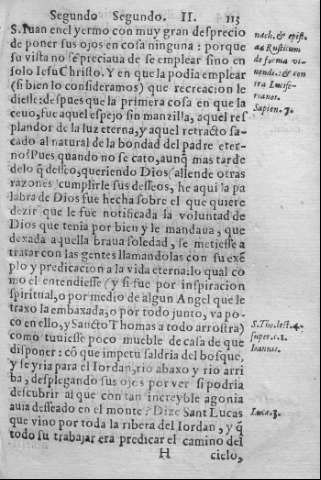 Segundo Segundo. II. 113
S. Iuan en el yermo con muy gran desprecio
de poner sus ojos en cosa ninguna : porque
su vista no se preciaua de se emplear sino en
solo Iesu Christo. Y en que la podia emplear
(si bien lo consideramos) que recreacion le
diesse: despues que la primera cosa en que la
ceuo, fue aquel espejo sin manzilla, aquel res
plandor de la luz eterna, y aquel retracto sa-
cado al natural de la bondad del padre eter-
no? Pues quando no se cato, aunq̃ mas tarde
delo q̃ desseo, queriendo Dios (allende otras
razones) cumplirle sus desseos, he aqui la pa
labra de Dios fue hecha sobre el que quiere
dezir que le fue notificada la voluntad de
Dios que tenia por bien y le mandaua, que
dexada aquella braua soledad, se metiesse a
tratar con las gentes llamandolas con su exẽ
plo y predicacion a la vida eterna: lo qual co
mo el entendiesse (y si fue por inspiracion
spiritual, o por medio de algun Angel que le
traxo la embaxada, o por todo junto, va po-
co en ello, y Sancto Thomas a todo arrostra)
como tuuiesse poco mueble de casa de que
disponer: cõ que impetu saldria del bosque,
y se yria para el Iordan, rio abaxo y rio arri
ba, desplegando sus ojos por ver si podria
descubrir al que con tan increyble agonia
auia desseado en el monte? Dize Sant Lucas
que vino por toda la ribera del Iordan, y q̃
todo su trabajar era predicar el camino del
H cielo,
nach. & epist.
ad Rusticum
de forma vi-
uendi. & con
tra Lucife-
rianos.
Sapien. 7.
S. Tho. lect. 4.
super. c. 1.
Ioannis.
Luca. 3.